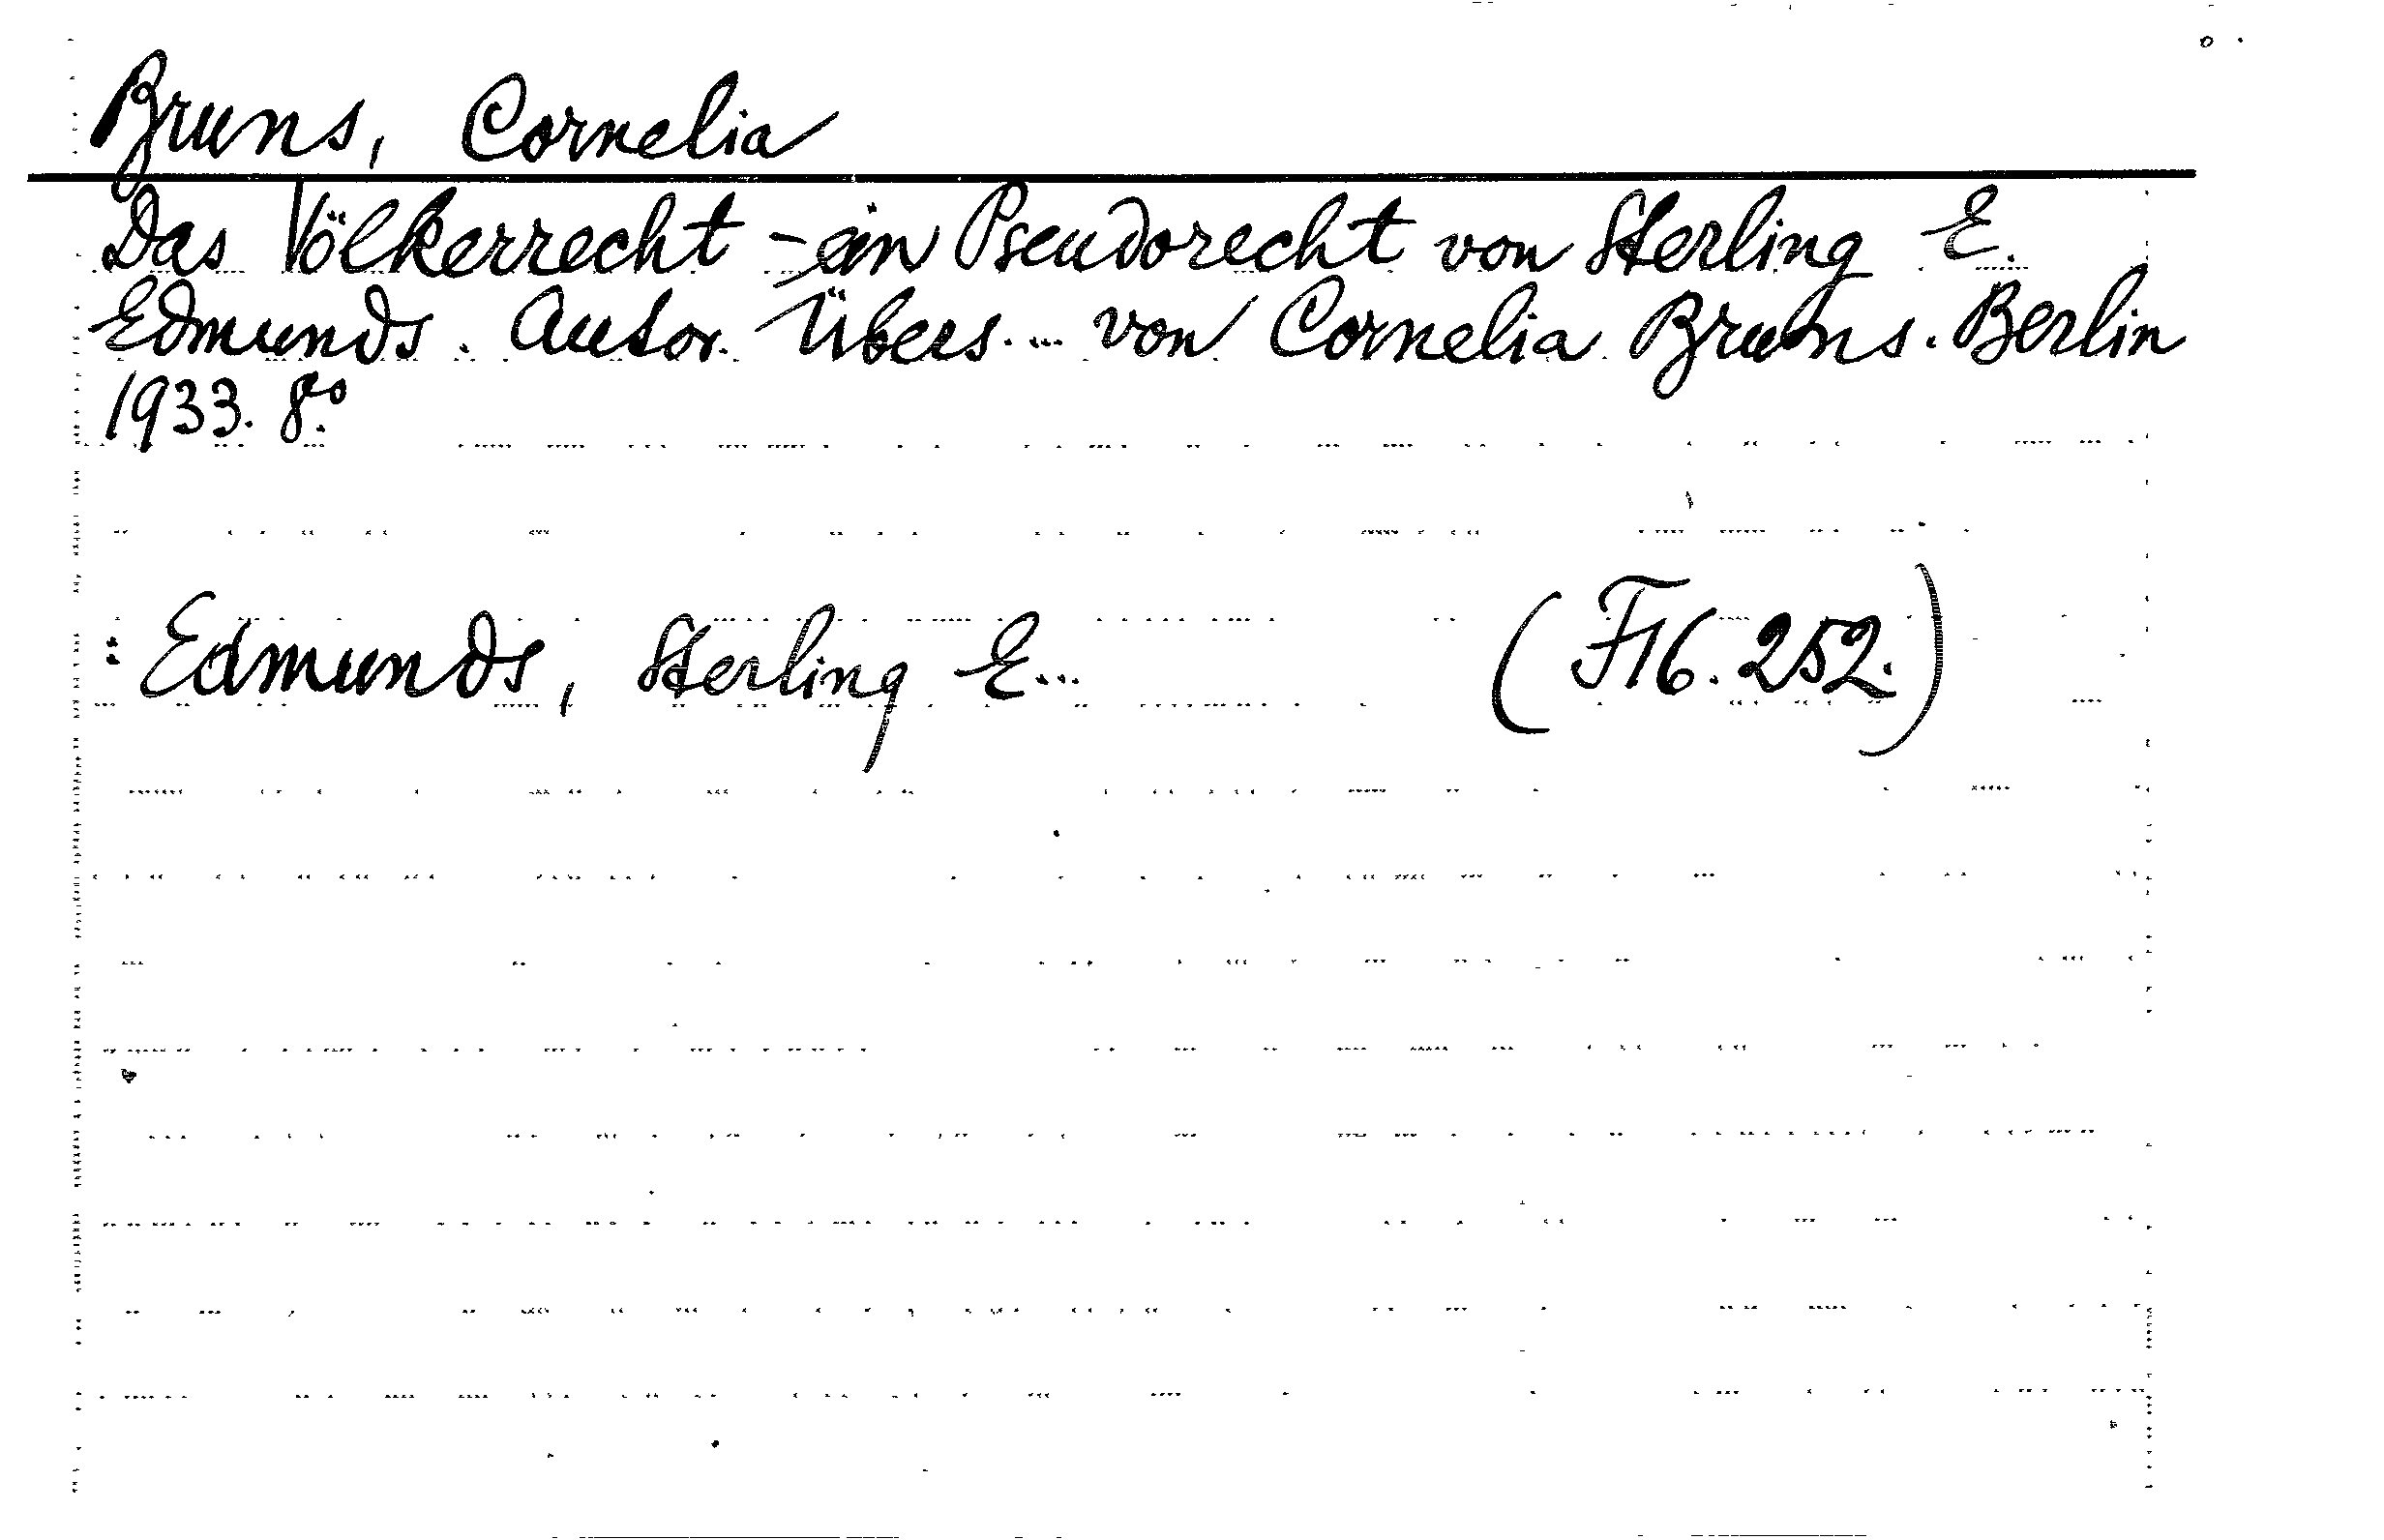 Bruns, Cornelia
Das Völkerrecht - ein Pseudorecht von Sterling E.
Edmunds. Autor. Übers... von Cornelia Bruns. Berlin
1933. 8°.
: Edmunds, Sterling E... (F16.252.)